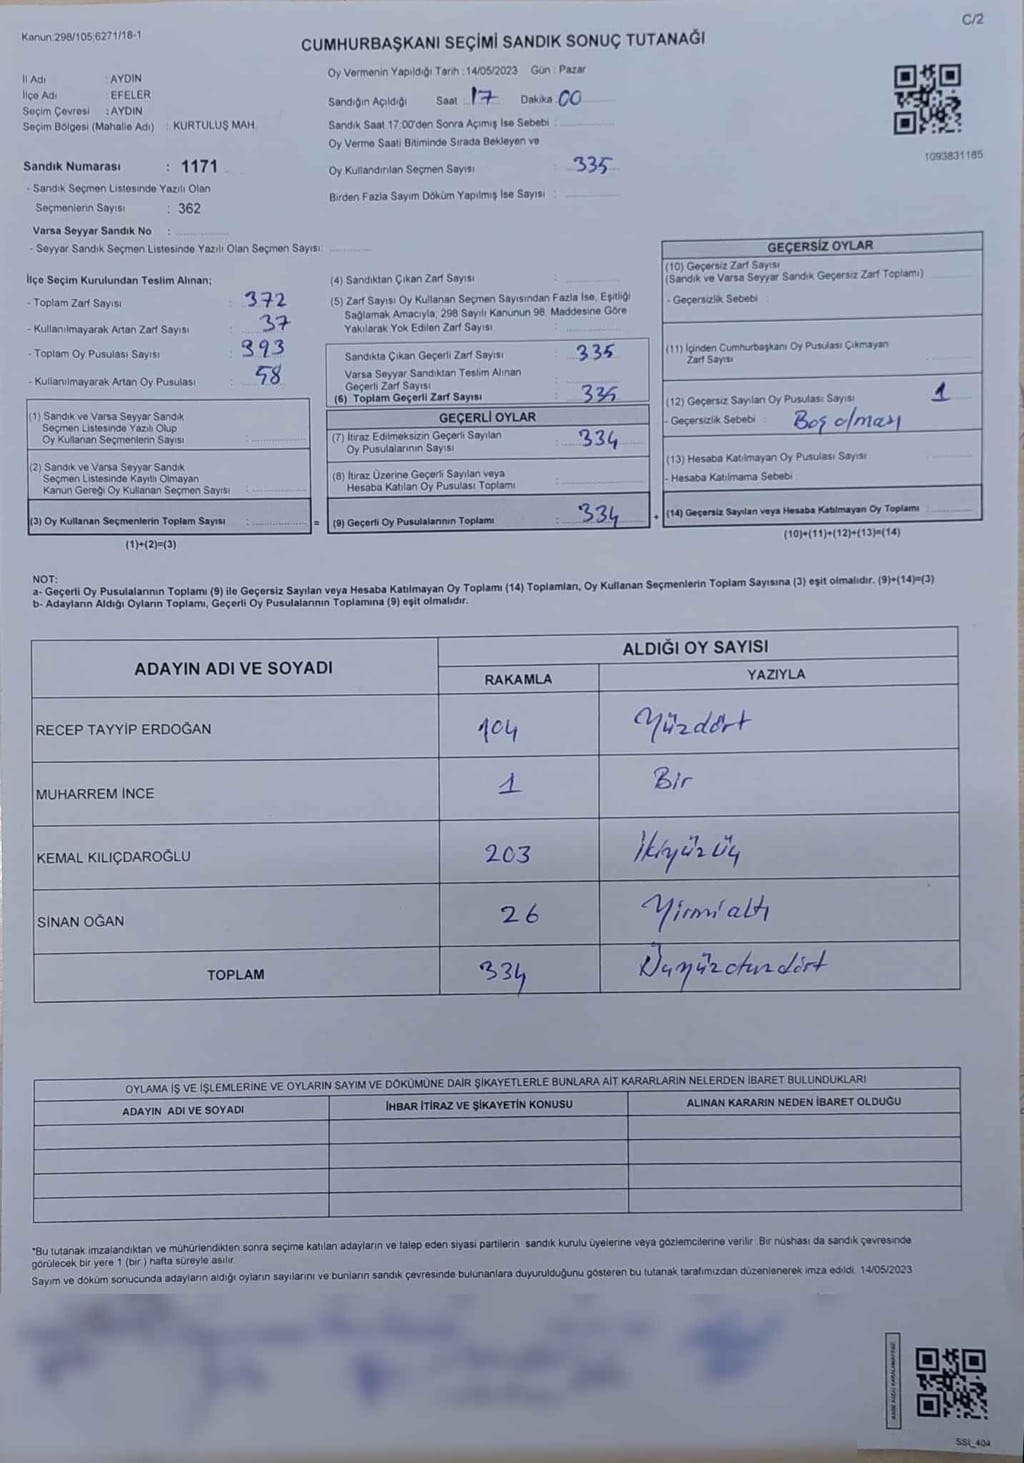 C/2
Kanun:298/105,6271/18-1
CUMHURBAŞKANI SEÇİMİ SANDIK SONUÇ TUTANAĞI
İl Adı : AYDIN
İlçe Adı : EFELER
Seçim Çevresi : AYDIN
Seçim Bölgesi (Mahalle Adı) : KURTULUŞ MAH.
Sandık Numarası : 1171
- Sandık Seçmen Listesinde Yazılı Olan
Seçmenlerin Sayısı : 362
Varsa Seyyar Sandık No :
- Seyyar Sandık Seçmen Listesinde Yazılı Olan Seçmen Sayısı:
Oy Vermenin Yapıldığı Tarih :14/05/2023 Gün : Pazar
Sandığın Açıldığı Saat : 17 Dakika : 00
Sandık Saat 17:00'den Sonra Açımış İse Sebebi :
Oy Verme Saati Bitiminde Sırada Bekleyen ve
Oy Kullandırılan Seçmen Sayısı : 335
Birden Fazla Sayım Döküm Yapılmış İse Sayısı :
1093831185
İlçe Seçim Kurulundan Teslim Alınan;
- Toplam Zarf Sayısı : 372
- Kullanılmayarak Artan Zarf Sayısı : 37
- Toplam Oy Pusulası Sayısı : 393
- Kullanılmayarak Artan Oy Pusulası : 58
(1) Sandık ve Varsa Seyyar Sandık
Seçmen Listesinde Yazılı Olup
Oy Kullanan Seçmenlerin Sayısı :
(2) Sandık ve Varsa Seyyar Sandık
Seçmen Listesinde Kayıtlı Olmayan
Kanun Gereği Oy Kullanan Seçmen Sayısı :
(3) Oy Kullanan Seçmenlerin Toplam Sayısı : =
(1)+(2)=(3)
(4) Sandıktan Çıkan Zarf Sayısı :
(5) Zarf Sayısı Oy Kullanan Seçmen Sayısından Fazla İse, Eşitliği
Sağlamak Amacıyla; 298 Sayılı Kanunun 98. Maddesine Göre
Yakılarak Yok Edilen Zarf Sayısı :
Sandıkta Çıkan Geçerli Zarf Sayısı : 335
Varsa Seyyar Sandıktan Teslim Alınan
Geçerli Zarf Sayısı :
(6) Toplam Geçerli Zarf Sayısı : 335
GEÇERLİ OYLAR
(7) İtiraz Edilmeksizin Geçerli Sayılan
Oy Pusulalarının Sayısı : 334
(8) İtiraz Üzerine Geçerli Sayılan veya
Hesaba Katılan Oy Pusulası Toplamı :
(9) Geçerli Oy Pusulalarının Toplamı : 334 +
GEÇERSİZ OYLAR
(10) Geçersiz Zarf Sayısı
(Sandık ve Varsa Seyyar Sandık Geçersiz Zarf Toplamı)
- Geçersizlik Sebebi :
(11) İçinden Cumhurbaşkanı Oy Pusulası Çıkmayan
Zarf Sayısı
(12) Geçersiz Sayılan Oy Pusulası Sayısı : 1
- Geçersizlik Sebebi : Boş olması
(13) Hesaba Katılmayan Oy Pusulası Sayısı
- Hesaba Katılmama Sebebi :
(14) Geçersiz Sayılan veya Hesaba Katılmayan Oy Toplamı
(10)+(11)+(12)+(13)=(14)
NOT:
a- Geçerli Oy Pusulalarının Toplamı (9) ile Geçersiz Sayılan veya Hesaba Katılmayan Oy Toplamı (14) Toplamları, Oy Kullanan Seçmenlerin Toplam Sayısına (3) eşit olmalıdır. (9)+(14)=(3)
b- Adayların Aldığı Oyların Toplamı, Geçerli Oy Pusulalarının Toplamına (9) eşit olmalıdır.
ADAYIN ADI VE SOYADI
ALDIĞI OY SAYISI
RAKAMLA YAZIYLA
RECEP TAYYİP ERDOĞAN 104 Yüzdört
MUHARREM İNCE 1 Bir
KEMAL KILIÇDAROĞLU 203 İkiyüzüç
SİNAN OĞAN 26 Yirmialtı
TOPLAM 334
OYLAMA İŞ VE İŞLEMLERİNE VE OYLARIN SAYIM VE DÖKÜMÜNE DAİR ŞİKAYETLERLE BUNLARA AİT KARARLARIN NELERDEN İBARET BULUNDUKLARI
ADAYIN ADI VE SOYADI İHBAR İTİRAZ VE ŞİKAYETİN KONUSU ALINAN KARARIN NEDEN İBARET OLDUĞU
*Bu tutanak imzalandıktan ve mühürlendikten sonra seçime katılan adayların ve talep eden siyasi partilerin sandık kurulu üyelerine veya gözlemcilerine verilir. Bir nüshası da sandık çevresinde
görülecek bir yere 1 (bir ) hafta süreyle asılır.
Sayım ve döküm sonucunda adayların aldığı oyların sayılarını ve bunların sandık çevresinde bulunanlara duyurulduğunu gösteren bu tutanak tarafımızdan düzenlenerek imza edildi. 14/05/2023
SSI_404